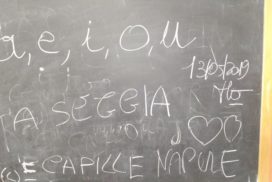 a, e, i, o, u
13/05/2019
A SEGGIA
E CAPILLE NAPULE